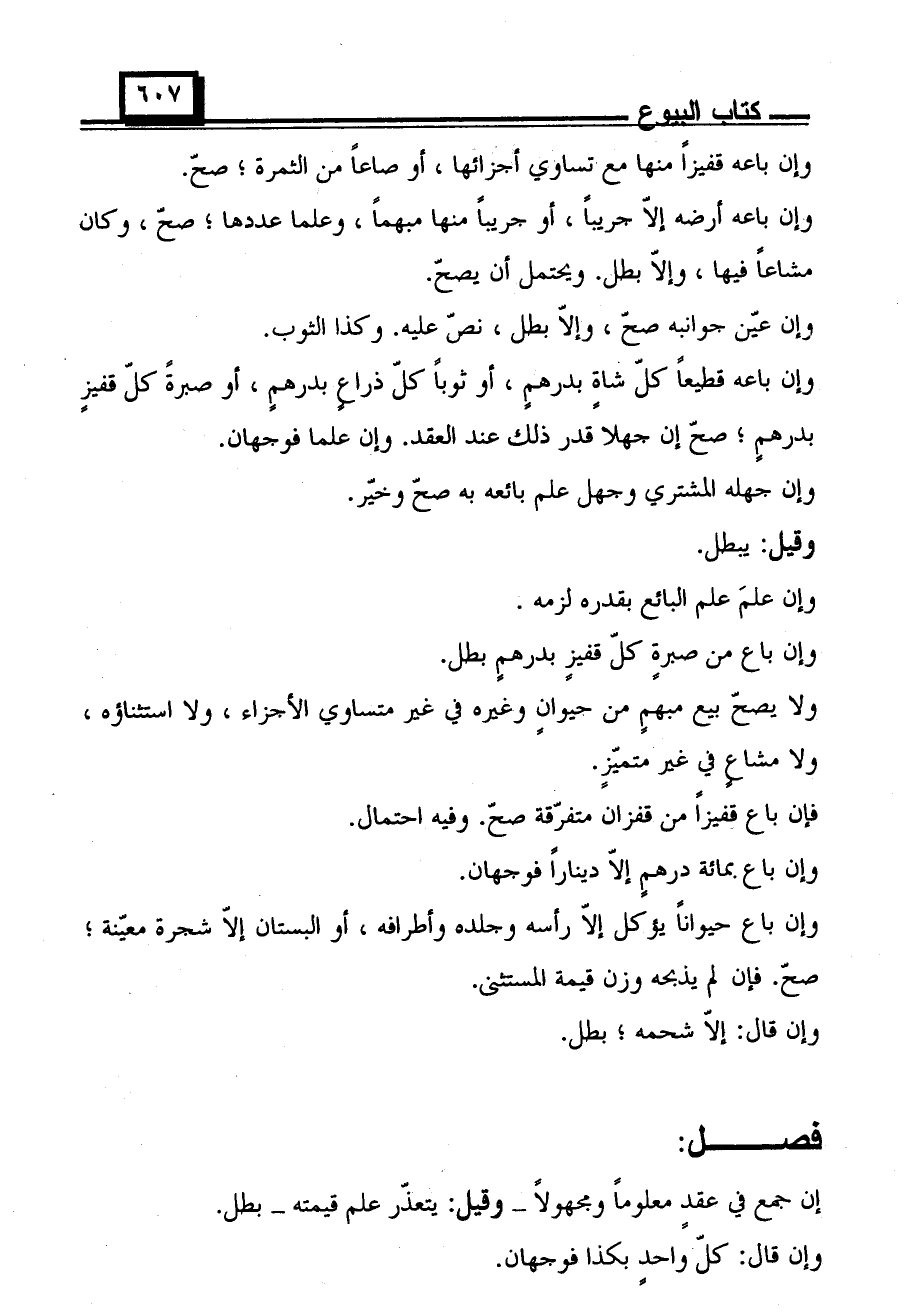 ٦٠٧
كتاب البيوع
وإن باعه قفيزاً منها مع تساوي أجزائها ، أو صاعاً من الثمرة ؛ صحّ.
وإن باعه أرضه إلاّ جريباً ، أو جريباً منها مبهماً ، وعلما عددها ؛ صحّ ، وكان
مشاعاً فيها ، وإلاّ بطل. ويحتمل أن يصحّ.
وإن عيّن جوانبه صحّ ، وإلاّ بطل ، نصّ عليه. وكذا الثوب.
وإن باعه قطيعاً كلّ شاةٍ بدرهمٍ ، أو ثوباً كلّ ذراعٍ بدرهمٍ ، أو صبرةً كلّ قفيزٍ
بدرهمٍ ؛ صحّ إن جهلا قدر ذلك عند العقد. وإن علما فوجهان.
وإن جهله المشتري وجهل علم بائعه به صحّ وخيّر.
وقيل: يبطل.
وإن علمَ علم البائع بقدره لزمه .
وإن باع من صبرةٍ كلّ قفيزٍ بدرهمٍ بطل.
ولا يصحّ بيع مبهمٍ من حيوانٍ وغيره في غير متساوي الأجزاء ، ولا استثناؤه ،
ولا مشاعٍ في غير متميّزٍ.
فإن باع قفيزاً من قفزان متفرّقة صحّ. وفيه احتمال.
وإن باع بمائة درهمٍ إلاّ ديناراً فوجهان.
وإن باع حيواناً يؤكل إلاّ رأسه وجلده وأطرافه ، أو البستان إلاّ شجرة معيّنة ؛
صحّ. فإن لم يذبحه وزن قيمة المستثنى.
وإن قال: إلاّ شحمه ؛ بطل.
فصــــــل:
إن جمع في عقدٍ معلوماً ومجهولاً ـ وقيل: يتعذّر علم قيمته ـ بطل.
وإن قال: كلّ واحدٍ بكذا فوجهان.